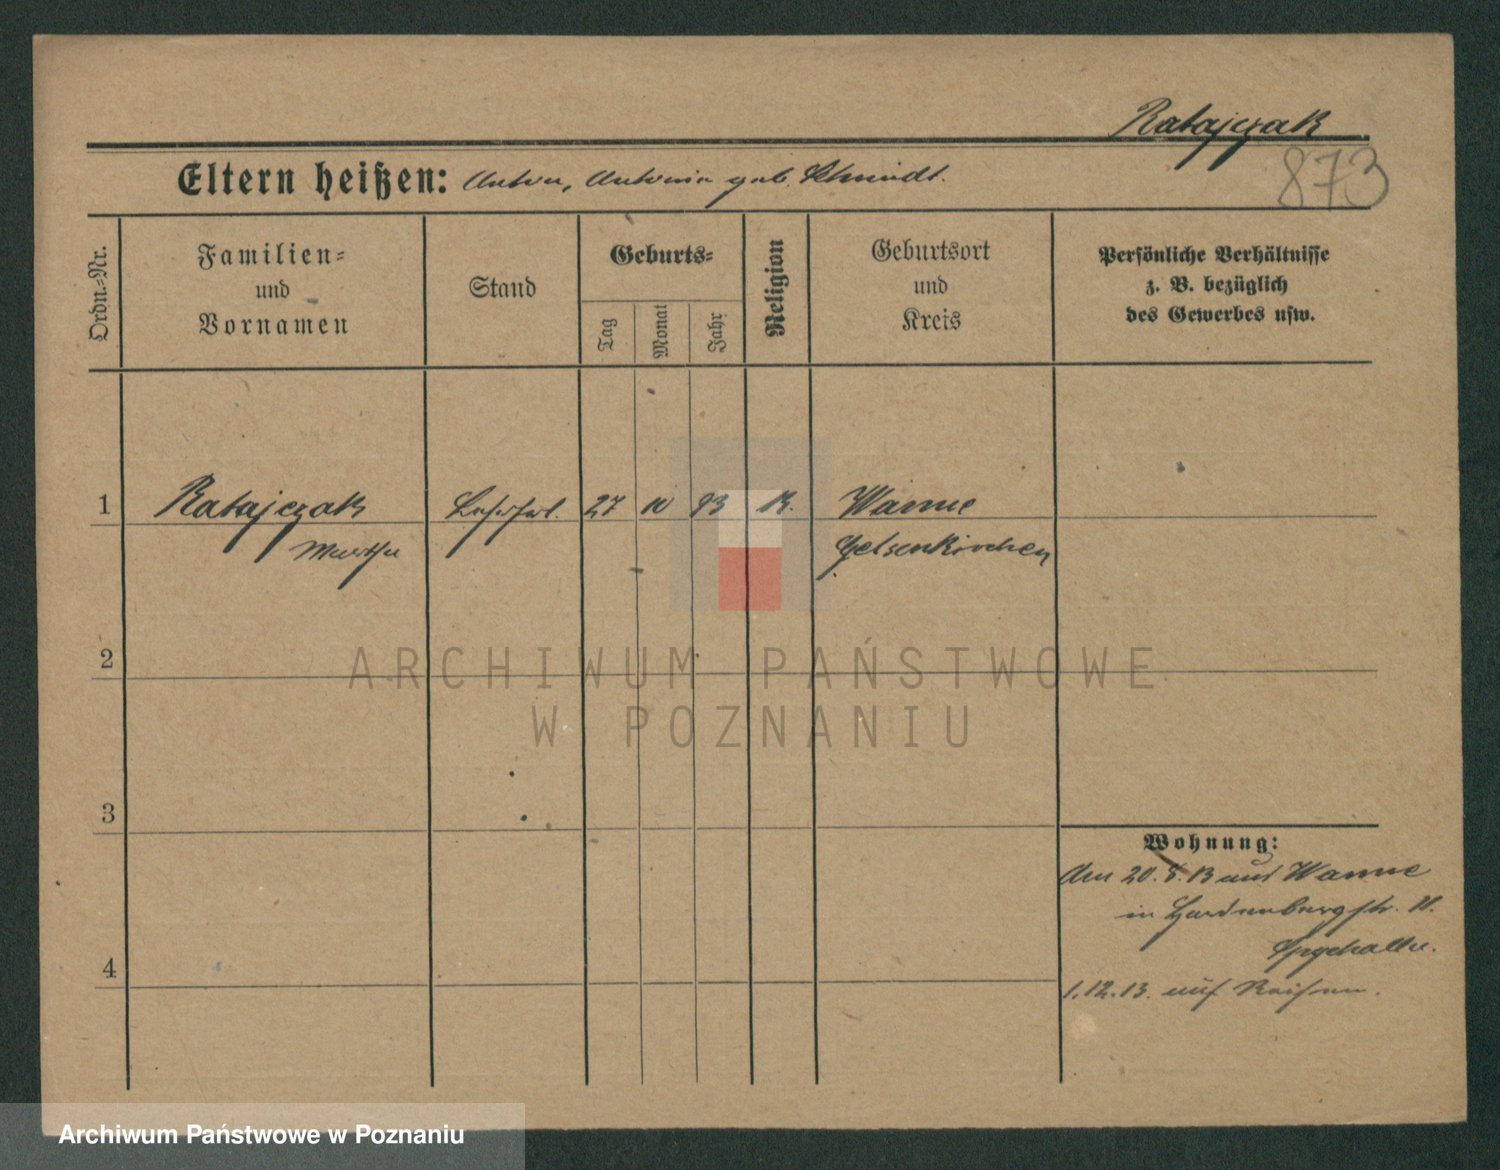 Ratajczak
873
Eltern heißen: Anton, Antonia geb. Schmidt.
Ordn.-Nr.
Familien-
und
Vornamen
Stand
Geburts-
Tag
Monat
Jahr
Religion
Geburtsort
und
Kreis
Persönliche Verhältnisse
z. B. bezüglich
des Gewerbes usw.
1 Ratajczak 27 93 K. Wanne
Martha Gelsenkirchen
2
3
4
Wohnung:
Am 20. 8. 13 aus Wanne
in Hardenbergstr. 11.
1.12.13. auf Reisen.
ARCHIWUM PAŃSTWOWE
W POZNANIU
Archiwum Państwowe w Poznaniu